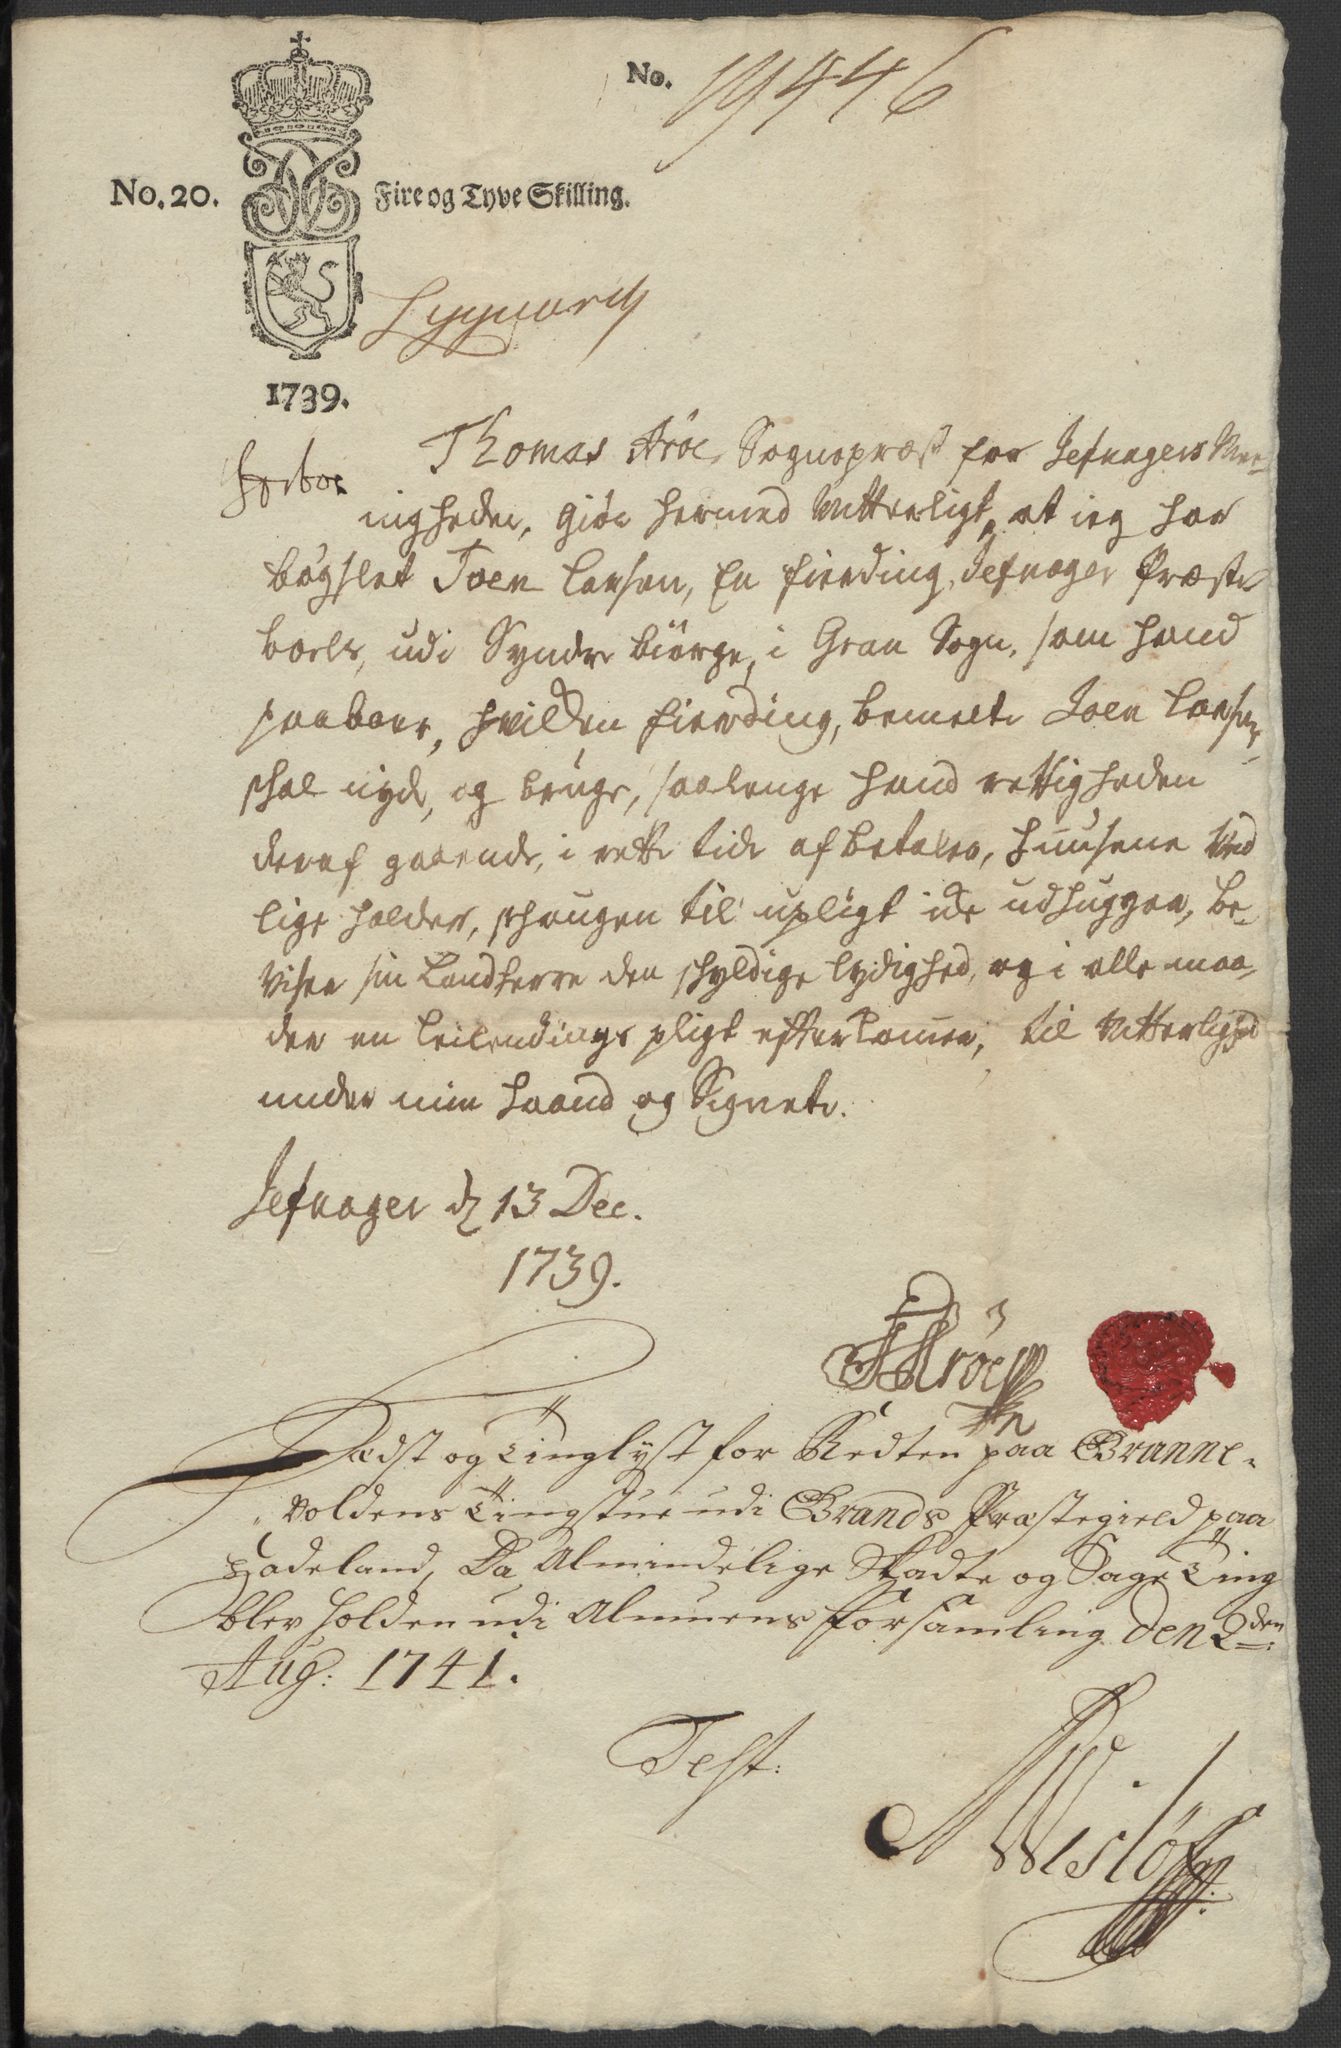 No. 19446
No. 20. Fire og Tyve Skilling.
1739.
Thomas Aröe, Sognepræst for Jefnagers Me-
nigheder, Giör hermed Vitterligt, at ieg har
bögslet Joen Larsen, En fierding Jefnager Præste
boels, udi Syndre Biörge, i Gran Sogn, som hand
paaboer, hvilken fierding, bemelte Joen Larsen,
schal nyde, og bruge, saalenge hand rettigheden
deraf gaaende, i rette tide afbetaler, huusene Ved
lige holder, schougen til upligt ide udhugger, be-
viser sin Landherre den schyldige lydighed, og i alle maa-
der en leilendings pligt efterkommer, til Vitterlighed
under min haand og Signete.
Jefnager d 13 Dec.
1739.
TAröe
Læst og Tinglyst for Retten paa Granne-
voldens Tingstue udi Grands Præstegield paa
Hadeland, Da Almindelige Skatte og Sage Ting
blev holden udi Almuens forsamling den 2den
Aug: 1741.
Test:
NWislöff